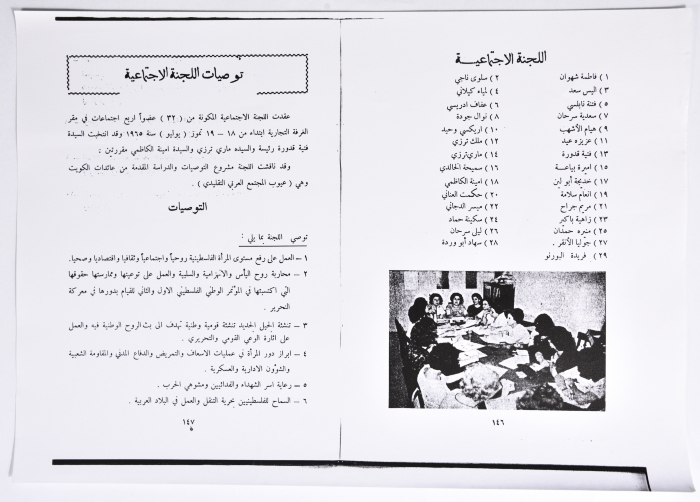 اللجنة الاجتماعيــة
١ ) فاطمة شهوان
٢ ) سلوى ناجي
٣ ) اليس سعد
٤ ) لمياء كيلاني
٥ ) فتنة نابلسي
٦ ) عفاف ادريسي
٧ ) سعدية سرحان
٨ ) نوال جودة
٩ ) هيام الأشهب
١٠ ) اريكسي وحيد
١١ ) عزيزه عيد
١٢ ) ملك ترزي
١٣ ) فتية قدورة
١٤ ) ماري ترزي
١٥ ) اميرة بياعـة
١٦ ) سميحة الخالدي
١٧ ) خديجة أبو لبن
١٨ ) امينة الكاظمي
١٩ ) انعام سلامة
٢٠ ) حكمت العناني
٢١ ) مريم جراح
٢٢ ) ميسر الدجاني
٢٣ ) زاهية باكير
٢٤ ) سكينة حماد
٢٥ ) منيره حمدان
٢٦ ) ليلى سرحان
٢٧ ) جوليا الأنقر .
٢٨ ) سهاد أبو وردة
٢٩ ) فريدة البورنو
١٤٦
توصيات اللجنة الاجتماعية
عقدت اللجنة الاجتماعية المكونة من ( ٣٢ ) عضواً اربع اجتماعات في مقر
الغرفة التجارية ابتداء من ١٨ – ١٩ تموز ( يوليو ) سنة ١٩٦٥ وقد انتخبت السيدة
فتية قدورة رئيسة والسيده ماري ترزي والسيدة امينة الكاظمي مقررتين :
وقد ناقشت اللجنة مشروع التوصيات والدراسة المقدمة من عائدات الكويت
وهي ( عيوب المجتمع العربي التقليدي ) .
التوصيات
توصي اللجنة بما يلي :
١ – العمل على رفع مستوى المرأة الفلسطينية روحياً واجتماعياً وثقافيا واقتصاديا وصحيا.
٢ – محاربة روح اليأس والانهزامية والسلبية والعمل على توعيتها وممارستها حقوقها
التي اكتسبتها في المؤتمر الوطني الفلسطيني الاول والثاني للقيام بدورها في معركة
التحرير .
٣ – تنشئة الجيل الجديد تنشئة قومية وطنية تهدف الى بث الروح الوطنية فيه والعمل
على اثارة الوعي القومي والتحريري .
٤ – ابراز دور المرأة في عمليات الاسعاف والتمريض والدفاع المدني والمقاومة الشعبية
والشؤون الادارية والعسكرية .
٥ – رعاية اسر الشهداء والفدائيين ومشوهي الحرب .
٦ – السماح للفلسطينيين بحرية التنقل والعمل في البلاد العربية .
١٤٧